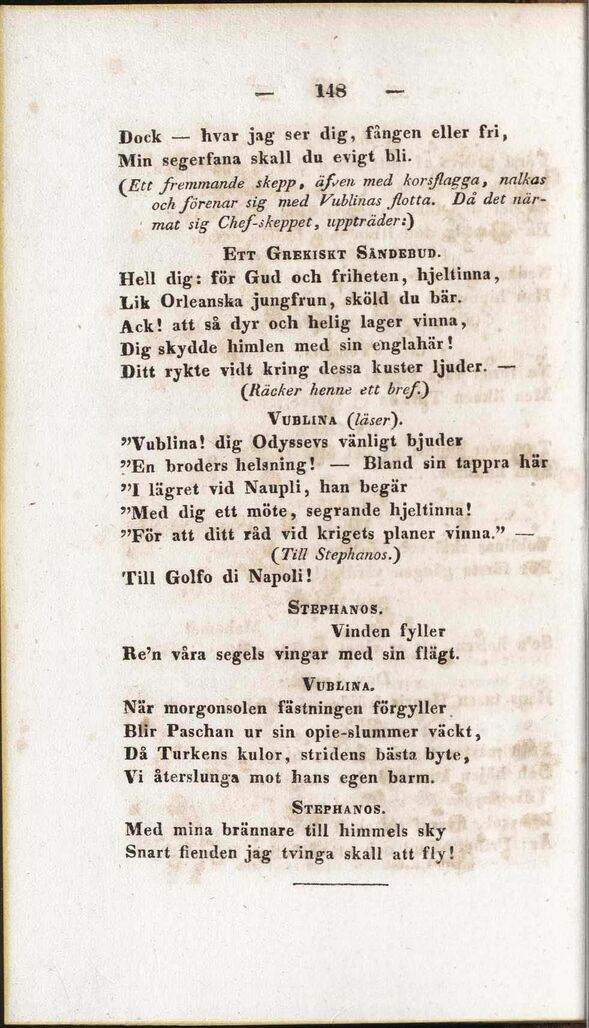 — 148 —
Dock — hvar jag ser dig, fången eller fri,
Min segerfana skall du evigt bli.
(Ett fremmande skepp, äfven med korsflagga, nalkas
och förenar sig med Vublinas flotta. Då det när-
mat sig Chef-skeppet, uppträder:)
ETT GREKISKT SÄNDEBUD.
Hell dig: för Gud och friheten, hjeltinna,
Lik Orleanska jungfrun, sköld du bär.
Ack! att så dyr och helig lager vinna,
Dig skydde himlen med sin englahär!
Ditt rykte vidt kring dessa kuster ljuder. —
(Räcker henne ett bref.)
VUBLINA (läser).
”Vublina! dig Odyssevs vänligt bjuder
”En broders helsning! — Bland sin tappra här
”I lägret vid Naupli, han begär
”Med dig ett möte, segrande hjeltinna!
”För att ditt råd vid krigets planer vinna.” —
(Till Stephanos.)
Till Golfo di Napoli!
STEPHANOS.
Vinden fyller
Re'n våra segels vingar med sin flägt.
VUBLINA.
När morgonsolen fästningen förgyller
Blir Paschan ur sin opie-slummer väckt,
Då Turkens kulor, stridens bästa byte,
Vi återslunga mot hans egen barm.
STEPHANOS.
Med mina brännare till himmels sky
Snart fienden jag tvinga skall att fly!